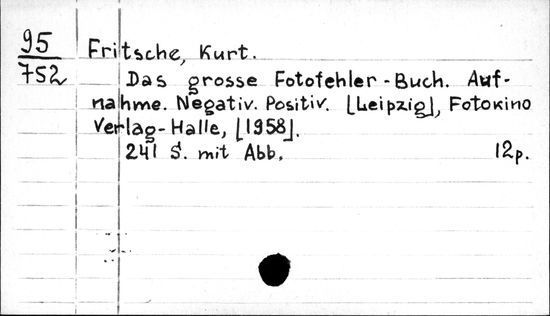 95
752
Fritsche, Kurt.
Das grosse Fotofehler-Buch. Auf-
nahme. Negativ. Positiv. [Leipzig], Fotokino
Verlag-Halle, [1958].
241 S. mit Abb. 12p.